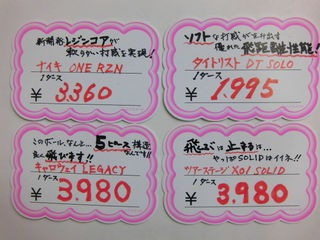 新開発レジンコアが
軟らかい打感を実現!
ナイキ ONE RZN
1ダース
¥ 3.360
ソフトな打感が生み出す
優れた飛距離性能!
タイトリスト DT SOLO
1ダース
¥ 1.995
このボール、なんと… 5ピース構造
なんです!!
飛びます!!
キャロウェイ LEGACY
1ダース
¥ 3.980
飛ぶは止まるは…
やっぱSOLIDはイイネ!!
ツアーステージ X01 SOLID
1ダース
¥ 3.980